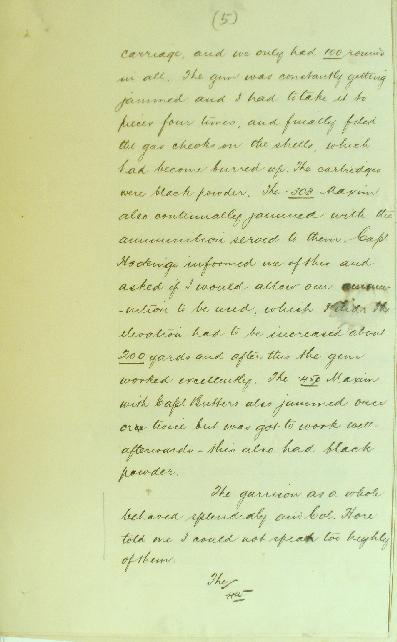 (5)
carriage, and we only had 100 rounds
in all. The gun was constantly getting
jammed and I had to take it to
pieces four times, and finally filed
the gas checks on the shells, which
had become burred up. The cartridges
were black powder. The .303 Maxim
also continually jammed with the
ammunition served to them. Capt
Hockings informed me of this and
asked if I would allow our ammu-
-nition to be used, which I did. The
elevation had to be increased about
200 yards and after this the gun
worked excellently. The .450 Maxim
with Capt Butters also jammed once
or twice but was got to work well
afterwards - this also had black
powder.
The garrison as a whole
behaved splendidly and Col. Hore
told me I could not speak too highly
of them.
The